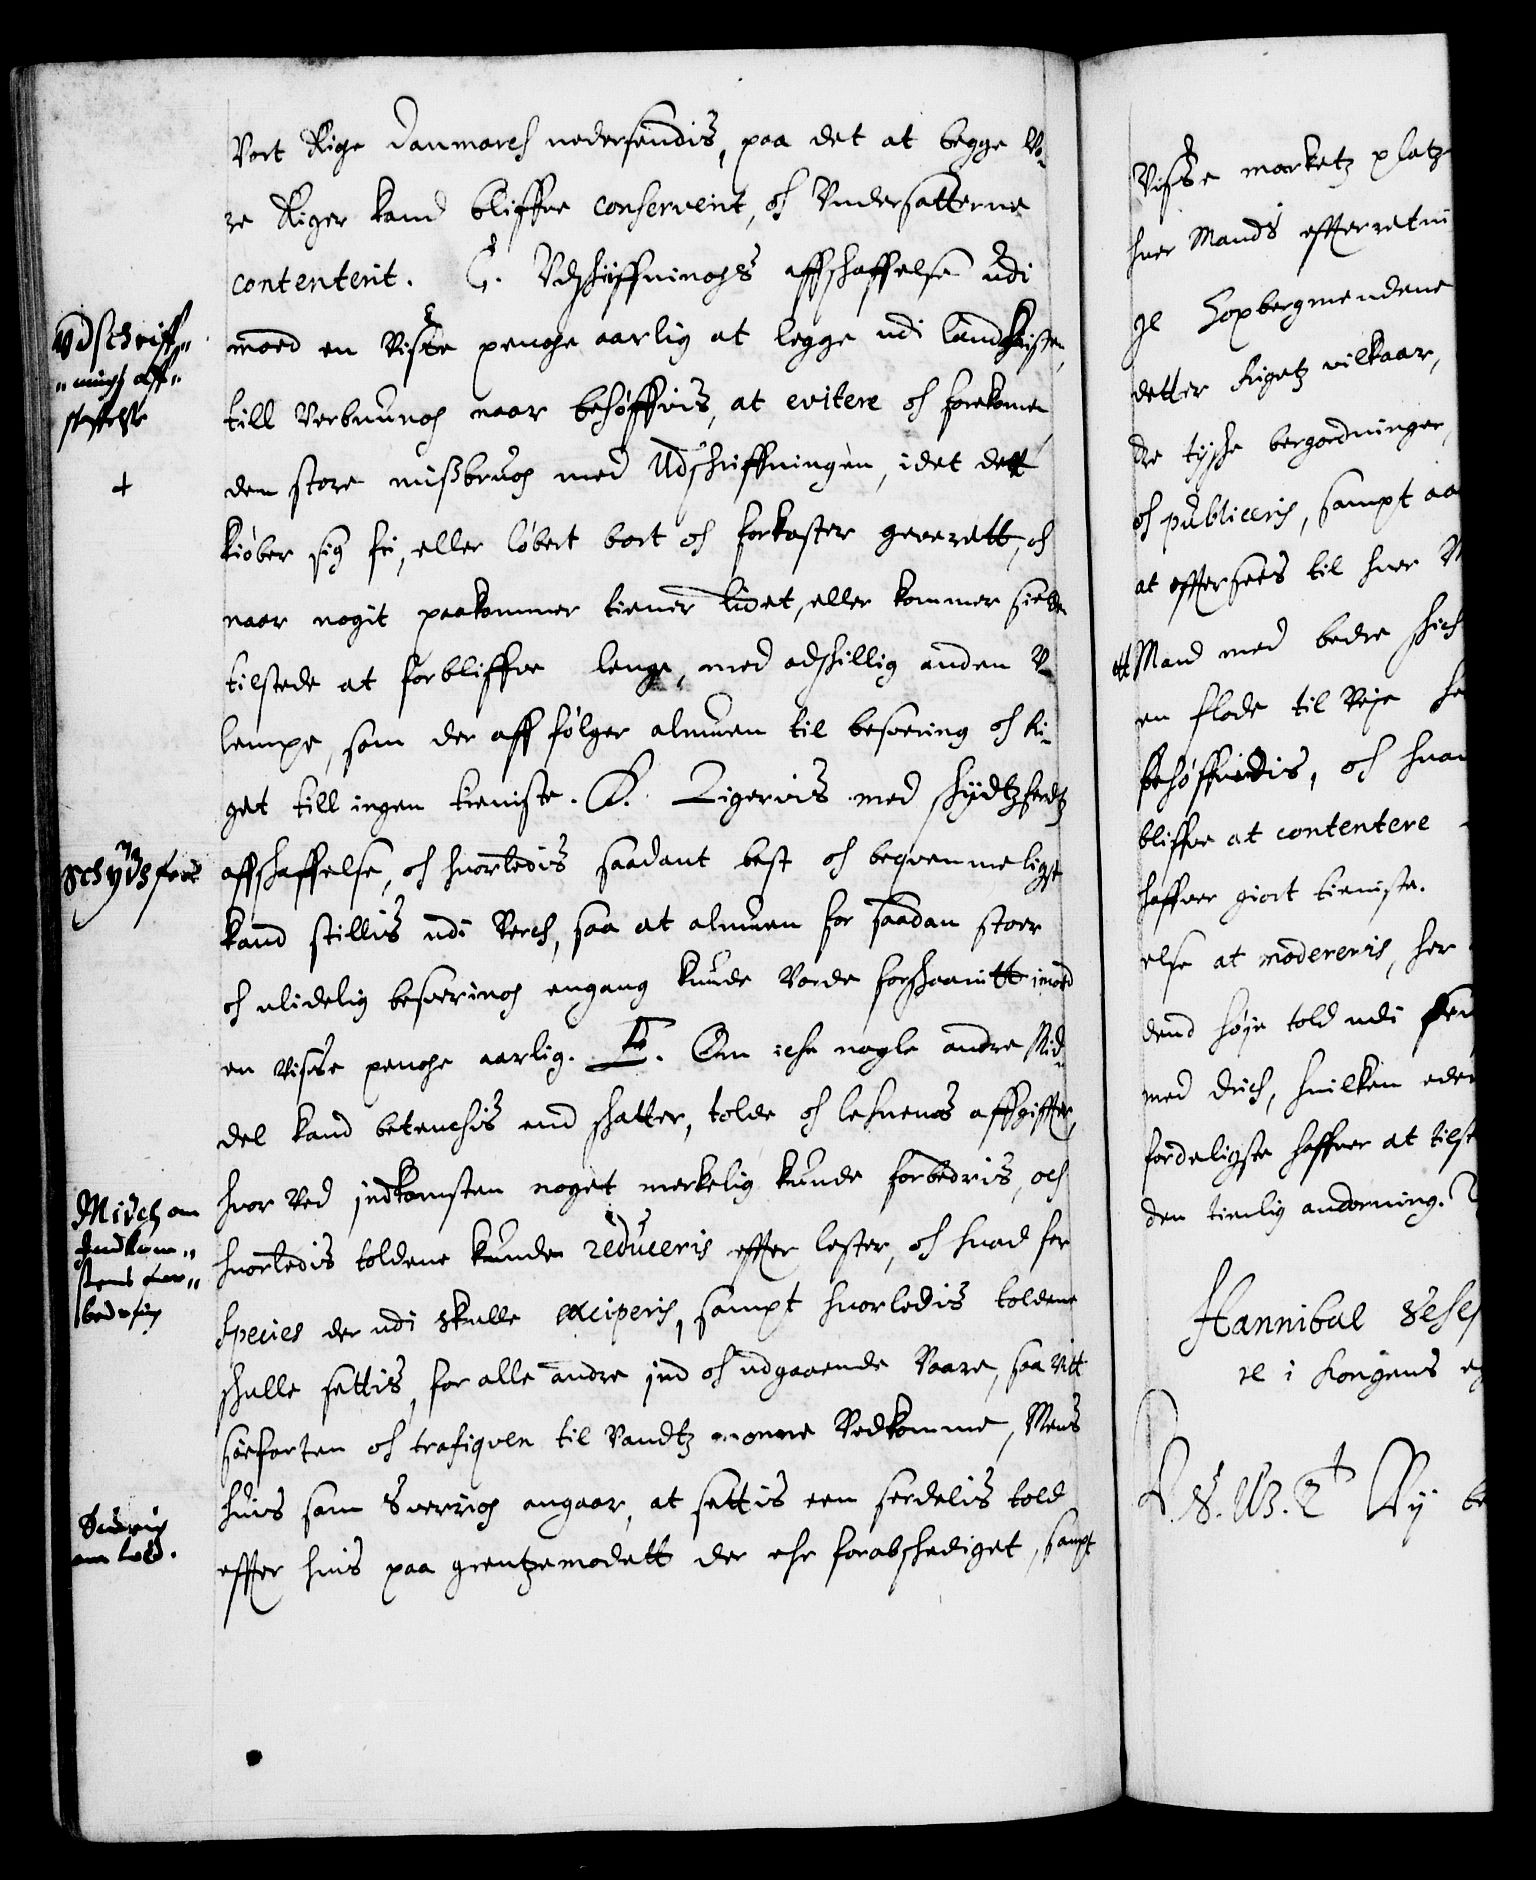 Vort Rige Danmarch nedersendis, paa det at begge Vo-
re Riger kand bliffue conserverit, oh Vndersatterne
contenterit. C. Vdschriffninghs affschaffelse udi
moed en Visse penge aarlig at legge udi landkisten,
till Verbnungh naar behøffvis, at evitere oh forekomme
den store misbrugh med Udschriffningen, idet dett
kiøber sig fri, eller løbert bort oh forkaster geverett, oh
naar nogit paakommer tiener lidet, eller kommer sielden
tilstede at forbliffve lenge, med adskillig anden V-
lempe, som der aff følger almuen til besvering oh Ri-
get till ingen tieniste. D. Ligervis med skydtzferdtz
affschaffelse, oh huorledis saadant best oh beqvemmeligst
kand stillis udi Verch, saa at almuen for saadan stoer
oh ulidelig besveringh engang kunde Vorde forskaanitt imod
en Visse penge aarlig. E. Om iche nogle andre Mid-
del kand betenchis end skatter, tolde oh lehnenes affgiffter,
huor Ved indkomsten noget merkelig kunde forbedris, och
huorledis toldene kunde reduceris effter lester, oh huad for
Species der udi skulle excciperis, sampt huorledis toldene
skulle settis, for alle andre ind oh udgaaende Vaare, saa Vitt
søefarten oh trafiqven til Vandtz monne Vedkomme, Mens
huis som Sverrigh angaar, at settis een serdelis told
effter huis paa grentzemødett der ehr forabskediget, sampt
Vdschriff-
ningh aff-
skaffelse
+
Schydsferd
Middel om
Indkom-
stens for-
bedring
Suerig
om told.
Visse marketz platze
huer Mands efterretni
detter Rigetz vilkaar,
dre tyske bergordninger,
oh publiceris, sampt aa
at efftersees til huer
Mand med bedre skich
en flode til Veje
behøffvedis, oh huad
bliffve at contentere
haffver giort tieniste.
else at modereris, her
dend høje told udi
med drich, huilken eder
fordeligste haffver at tilst
den tienlig anordning.
Hannibal Sehes
re i Kongens